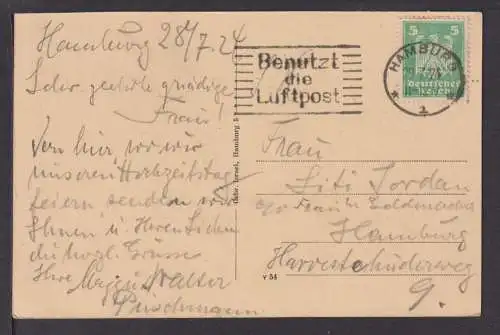 Hamburg 28/7.24
Sehr geehrte gnädige
Frau!
Von hier wo wir
unseren Hochzeitstag
feiern senden wir
Ihnen u Ihren Lieben
die herzl. Grüsse
Ihre
Walter
Gebr. Isrnel, Hamburg 5
Benutzt
die
Luftpost
HAMBURG
5 5
Deutsches
Reich
Frau
Liti Jordan
c/o Frau
Hamburg
Harvestehuderweg
9.
V 54